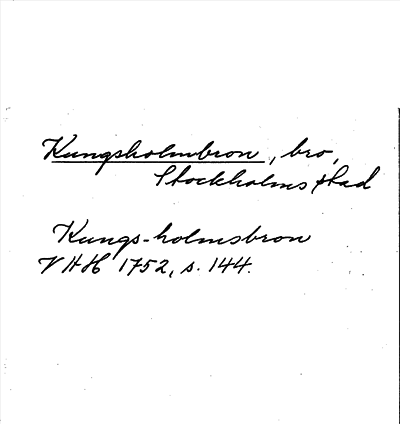 Kungsholmbron, bro,
Stockholms stad
Kungs-holmsbron
VHH 1752, s. 144.